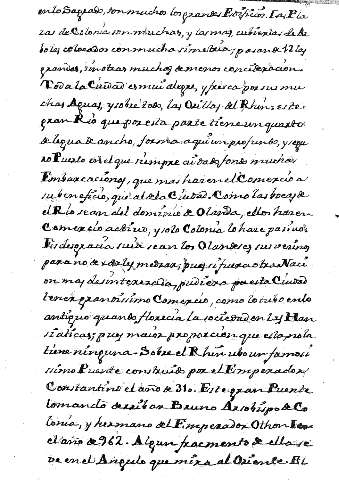 en lo Sagrado, son muchos los grandes Edificios. Las Pla
zas de Colonia son muchas, y las mas, cubiertas de Ar
boles colocados con mucha simetria; pasan de 12 las
grandes, sin otras muchas de menos concideracion
Toda la Ciudad es mui alegre, y fresca por sus mu
chas Aguas, y sobre todo, las Orillas del Rhin: este
gran Rio que por esta parte tiene un quarto
de legua de ancho, forma aqui un profundo, y segu
ro Puerto en el que siempre ai dado fondo muchas
Embarcaciones, que mas hacen el Comercio a
su beneficio, que al de la Ciudad. Como las bocas de
el Rio sean del dominio de Olanda, ellos hacen
Comercio activo, y solo Colonia lo hace pasivo
Es desgracia suia sean los Olandeses sus vecinos
para no dejarles medrar; pues si fuera otra Naci
on mas desinterezada, pudiera por esta Ciudad
tener grandisimo Comercio, como lo tubo en lo
antiguo quando florecia la sociedad en las Han
siaticas; pues maior proporcion que esta no la
tiene ninguna. Sobre el Rhin ubo un famosi
ssimo Puente construido por el Emperador
Constantino el año de 310. Este gran Puente
lo mando derribar Bruno Arsobispo de Co
lonia, y hermano del Emperador Othon I en
el año de 962. Algun fragmento de ella se
ve en el Angulo que mira al Oriente El